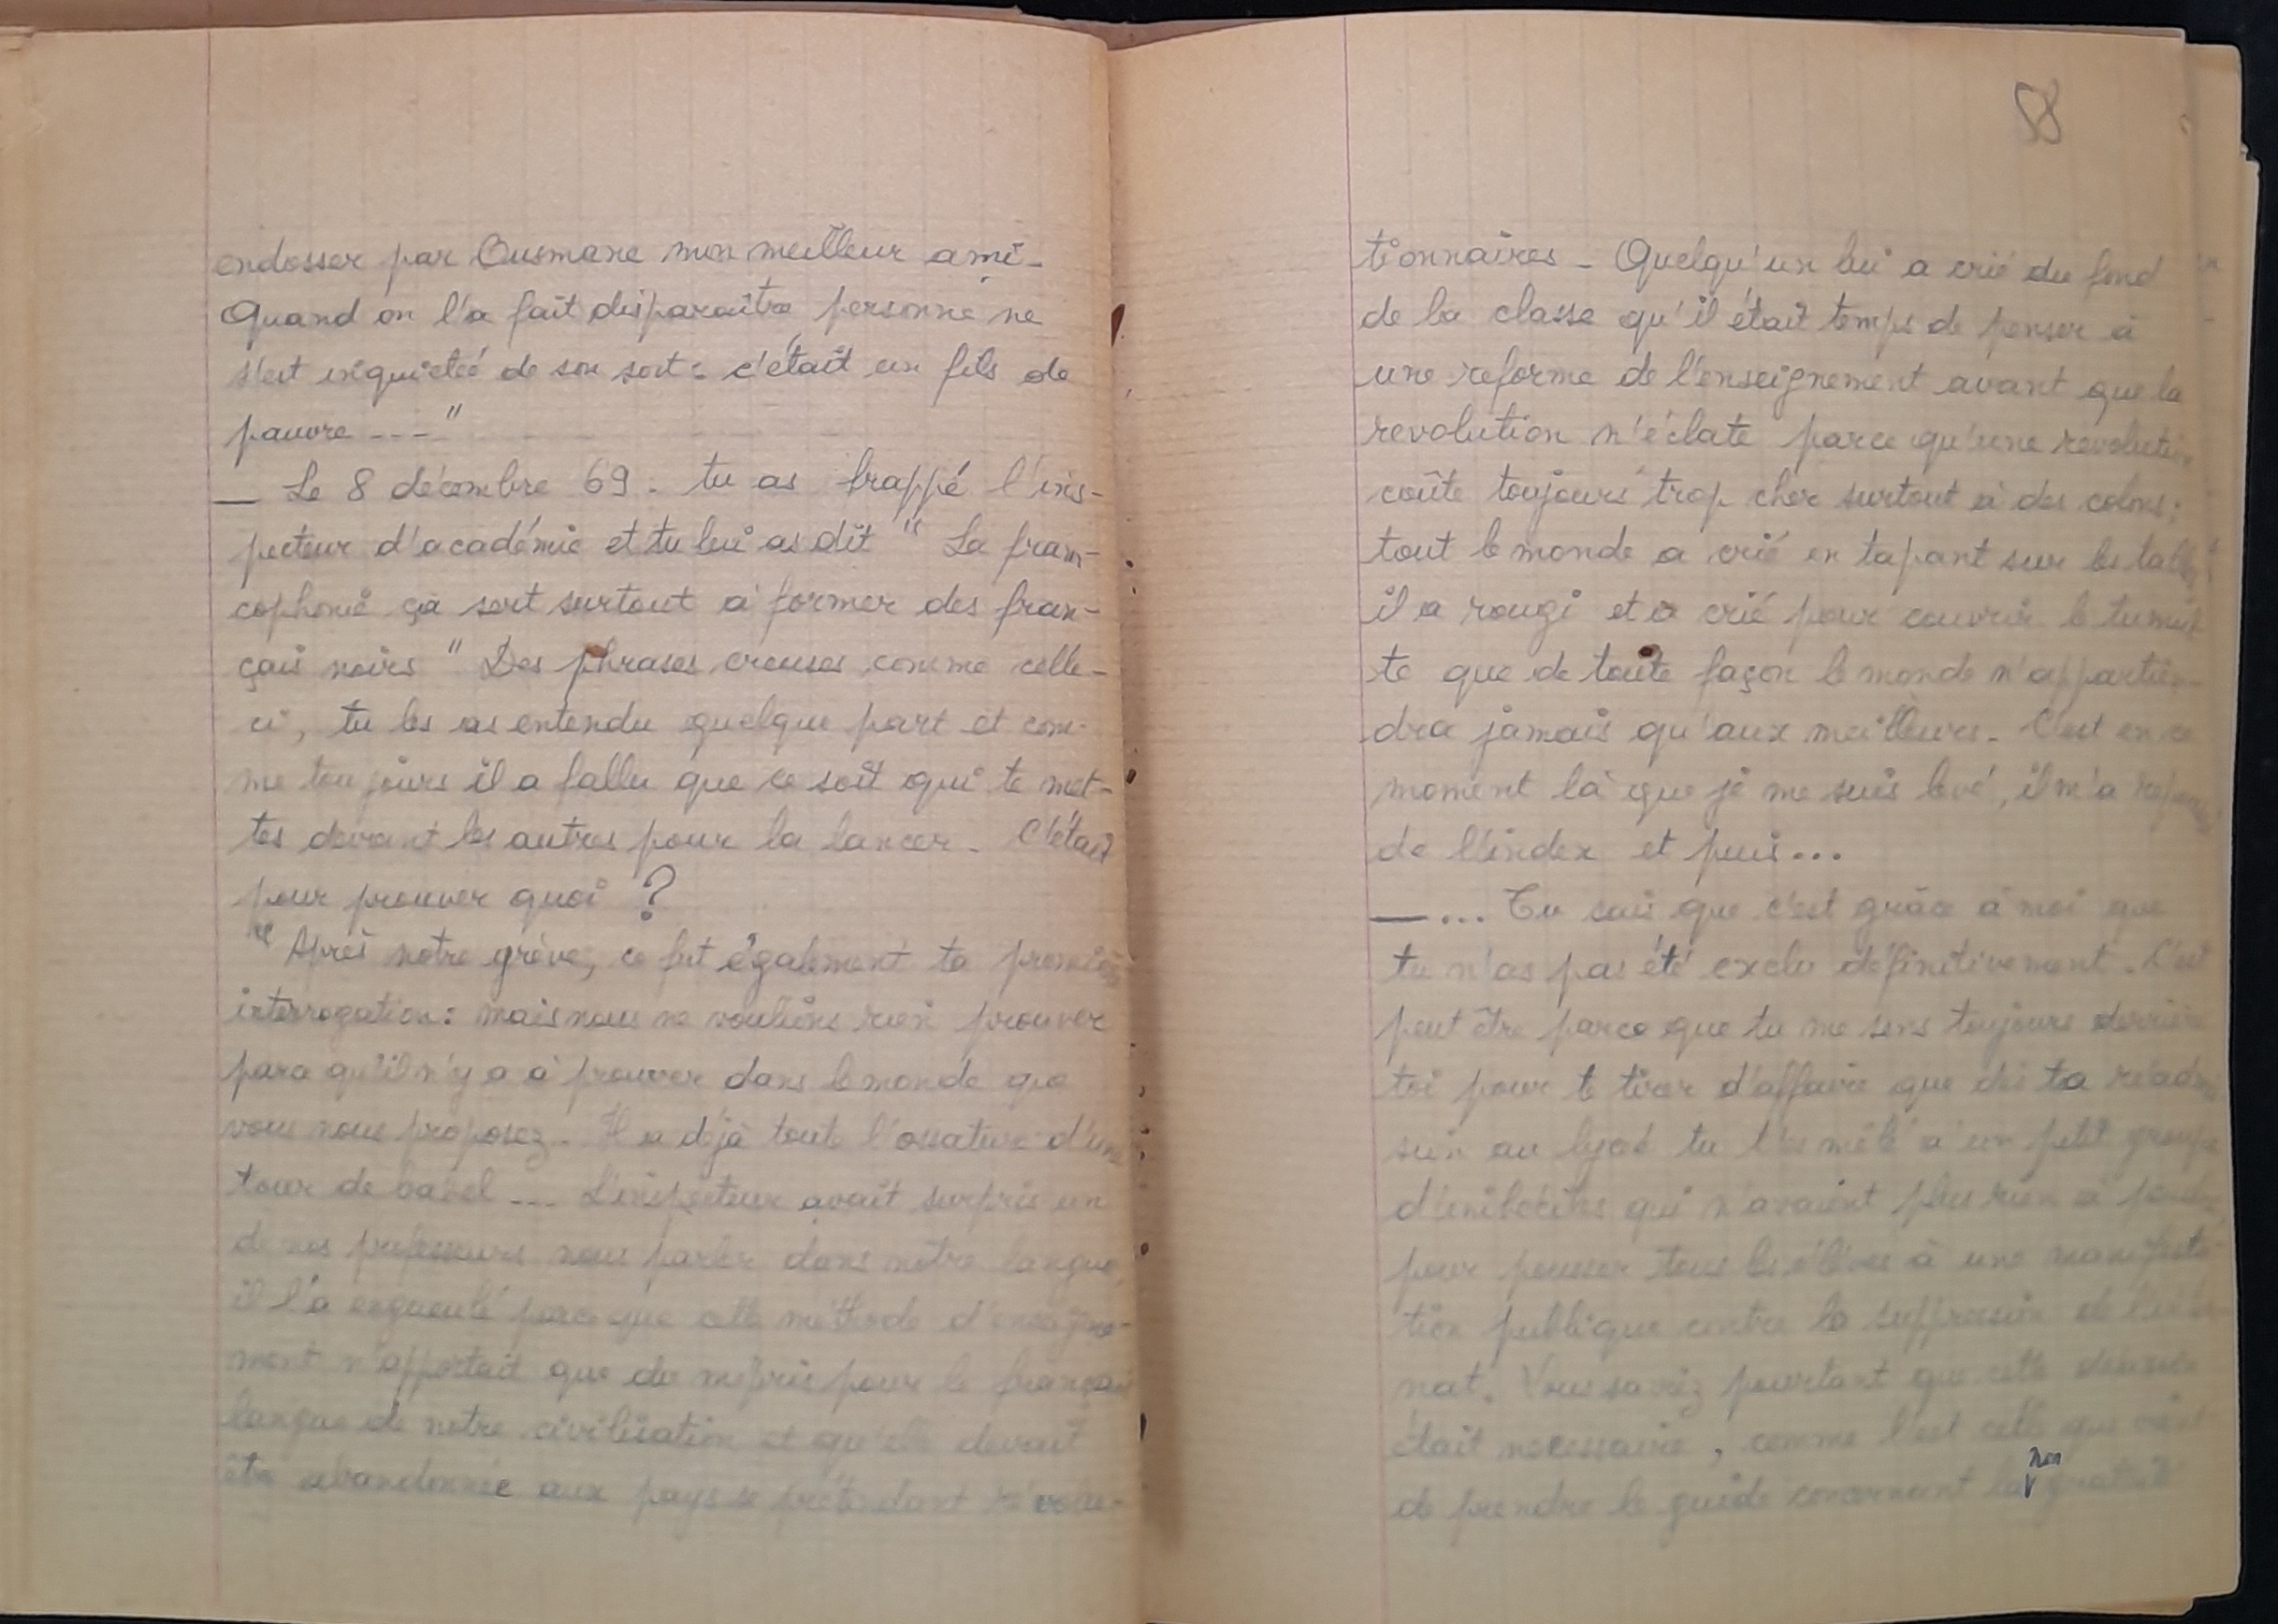 endosser par Ousmane mon meilleur ami -
Quand on l'a fait disparaître personne ne
s'est inquiété de son sort : c'était un fils de
pauvre --- "
— Le 8 décembre 69. tu as frappé l'ins-
pecteur d'académie et tu lui as dit " La fran-
cophonie ça sert surtout à former des fran-
çais noirs " Des phrases creuses comme celle-
ci, tu les as entendu quelque part et com-
me toujours il a fallu que ce soit qui te met-
tes devant les autres pour la lancer - C'était
pour prouver quoi ?
" Après notre grève, ce fut également ta première
interrogation : mais nous ne voulions rien prouver
parce qu'il n'y a à prouver dans le monde que
vous nous proposez - Il a déjà toute l'ossature d'une
tour de babel --- L'inspecteur avait surpris un
de nos professeurs nous parler dans notre langue,
il l'a engueulé parce que cette méthode d'enseigne-
ment n'apportait que du mépris pour le français
langue de notre civilisation et qu'elle devait
être abandonnée aux pays se prétendant révolu-
58
tionnaires - Quelqu'un lui a crié du fond
de la classe qu'il était temps de penser à
une reforme de l'enseignement avant que la
revolution n'éclate parce qu'une revolution
coûte toujours trop cher surtout à des colons ;
tout le monde a crié en tapant sur les tables
il a rougi et a crié pour couvrir le tumul
te que de toute façon le monde n'appartien-
dra jamais qu'aux meilleurs - C'est en ce
moment là que je me suis levé, il m'a
de l'index et puis...
— ... Tu sais que c'est grâce à moi que
tu n'as pas été exclu définitivement. C'est
peut être parce que tu me sens toujours derrière
toi pour te tirer d'affaire que dès ta réadmis
sion au lycée tu t'es mêlé à un petit groupe
d'imbéciles qui n'avaient plus rien à perdre
pour pousser tous les élèves à une manifesta-
tion publique contre la suppression de l'inter-
nat. Vous saviez pourtant que cette
était necessaire, comme l'est celle que
de prendre le guide concernant la non gratuité